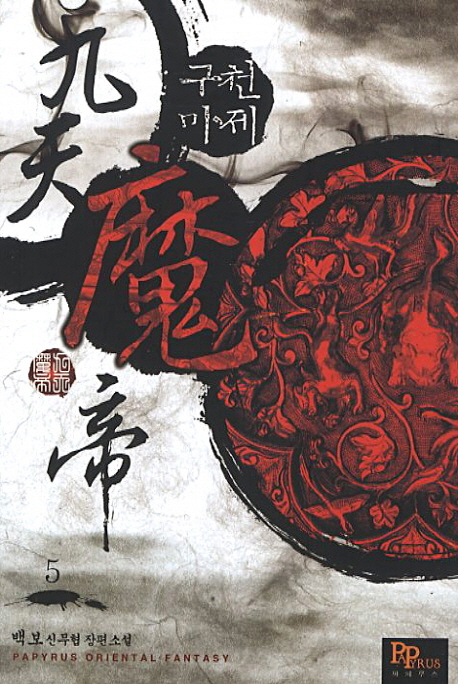 九天
魔
帝
구천
마제
5
백보 신무협 장편소설
PAPYRUS ORIENTAL FANTASY
PAPYRUS
파피루스